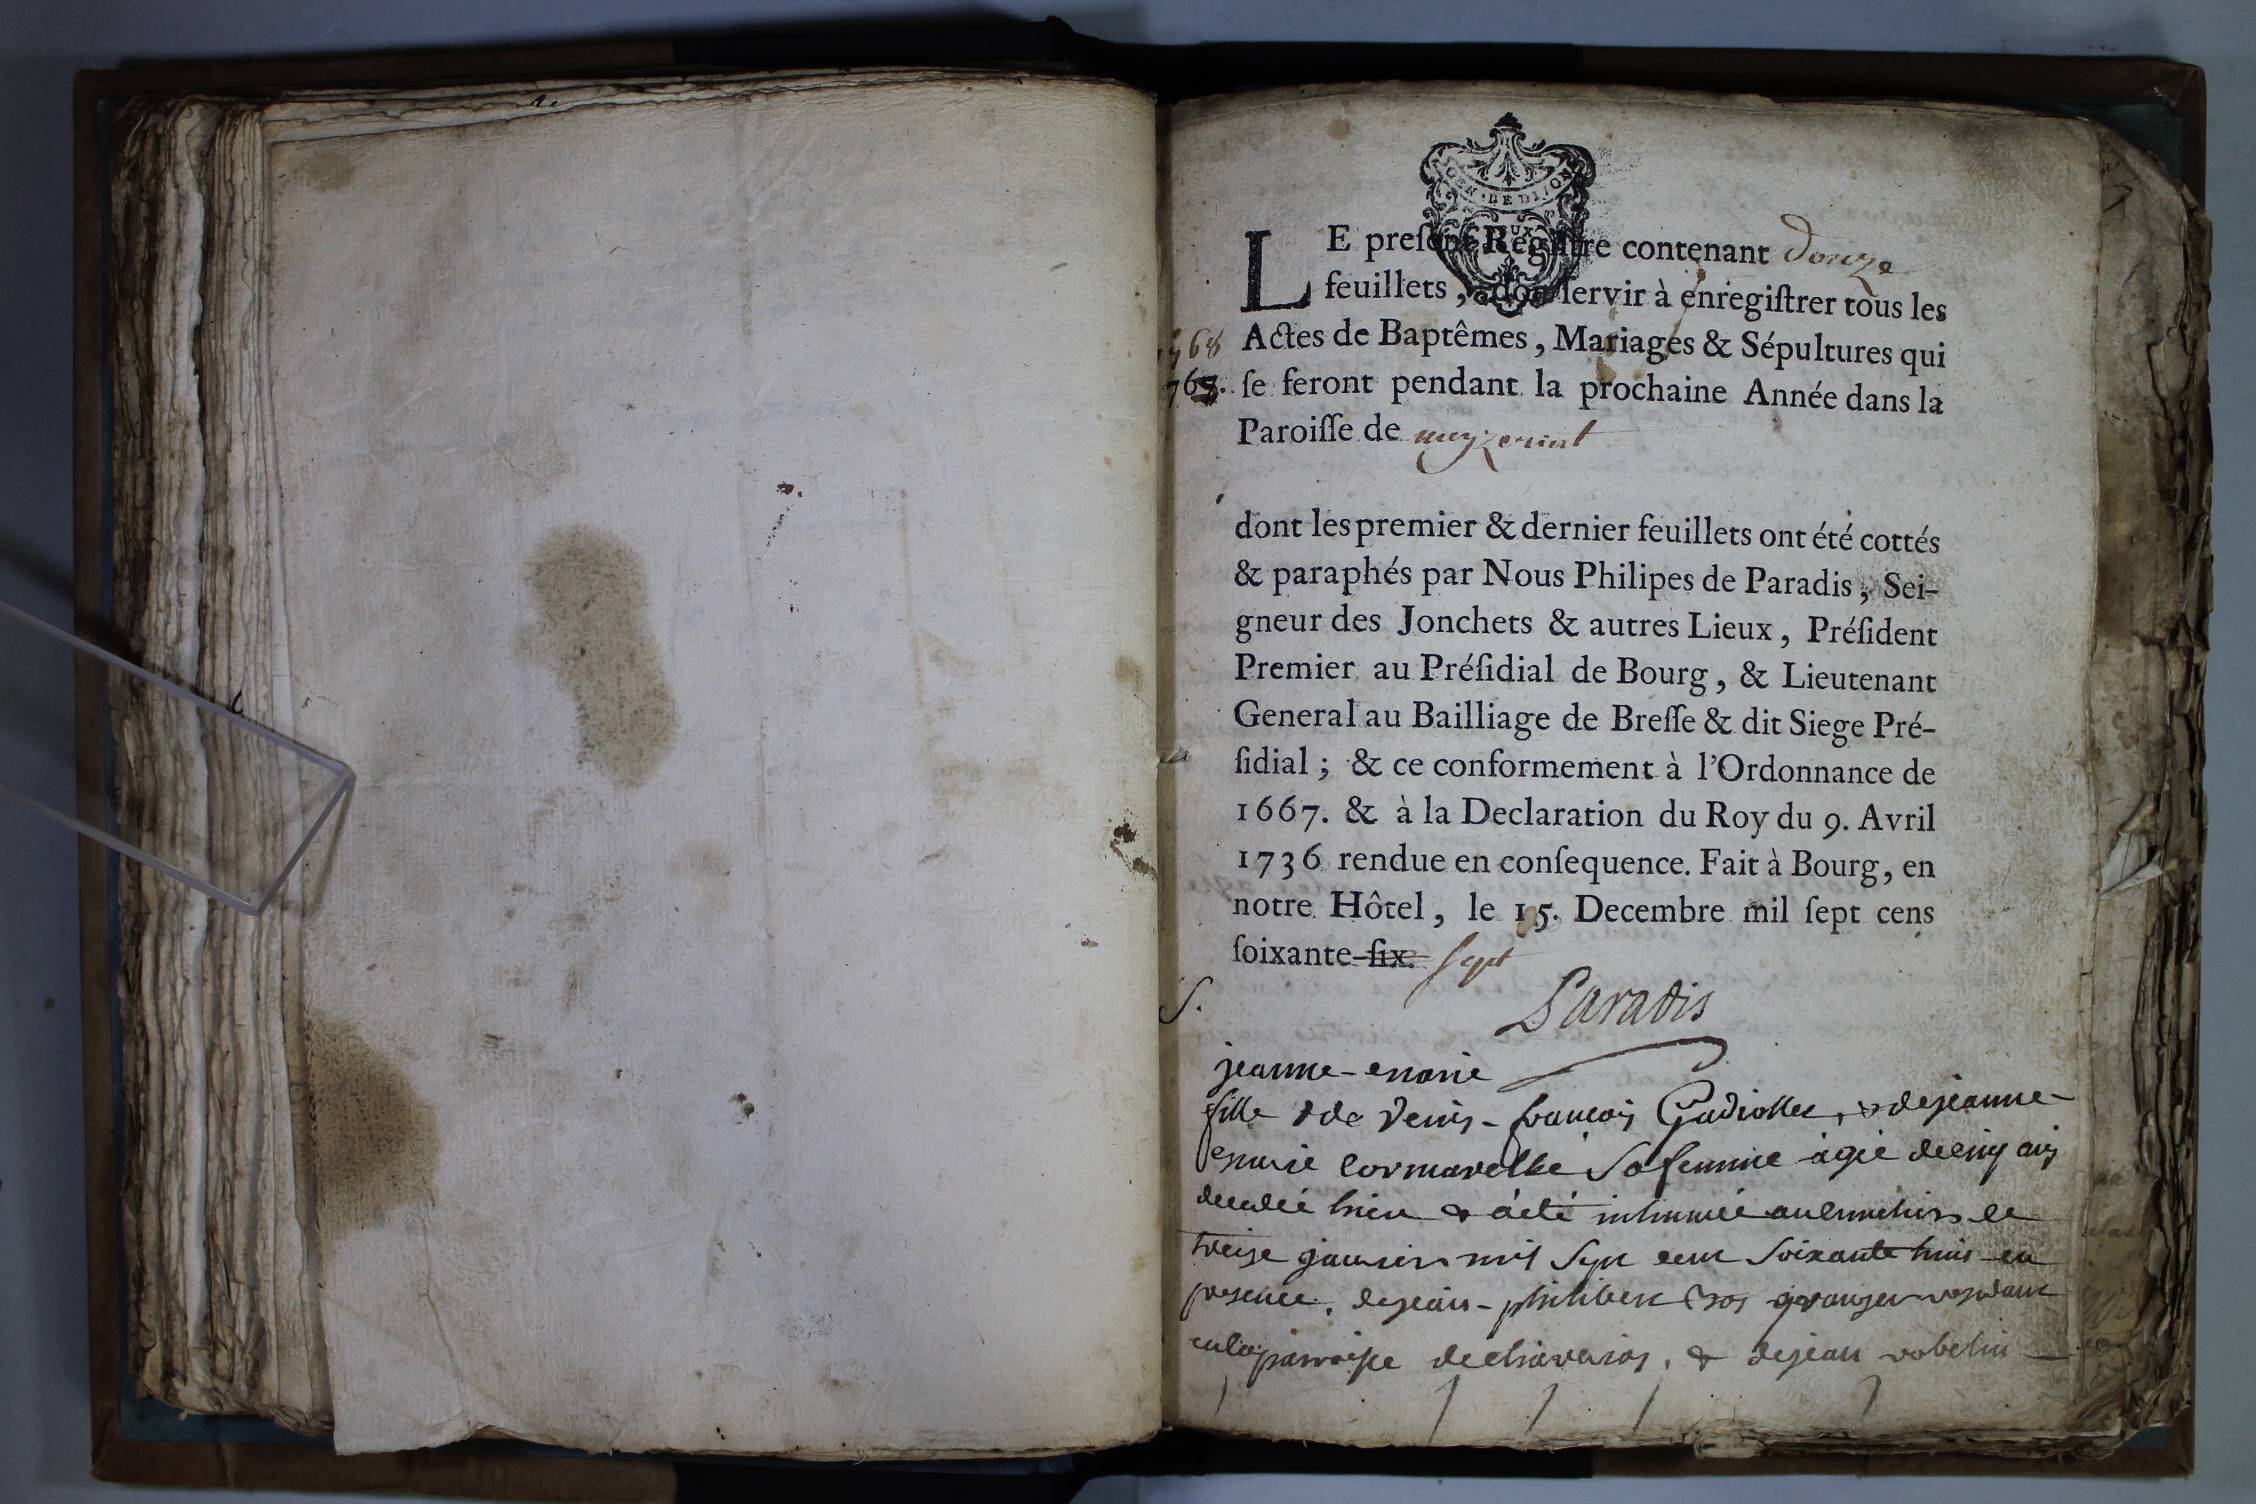 GEN. DE DIJON
LE preſent Regiſtre contenant douze
feuillets, doit ſervir à enregiſtrer tous les
1768 Actes de Baptêmes, Mariages & Sépultures qui
ſe feront pendant la prochaine Année dans la
Paroiſſe de meyzeriat
dont les premier & dernier feuillets ont été cottés
& paraphés par Nous Philipes de Paradis, Sei-
gneur des Jonchets & autres Lieux, Préſident
Premier au Préſidial de Bourg, & Lieutenant
General au Bailliage de Breſſe & dit Siege Pré-
ſidial; & ce conformement à l'Ordonnance de
1667. & à la Declaration du Roy du 9. Avril
1736 rendue en conſequence. Fait à Bourg, en
notre Hôtel, le 15. Decembre mil ſept cens
ſoixante-ſix. sept
S.
Paradis
jeanne-marie
fille de Denis-francois Gadiollet, & de jeanne-
marie sa femme agée de cinq ans
decedée hier & a été inhumée au cimetiere le
treize janvier mil sept cent soixante huit en
presence de jean-philibert granger residant
en la parroisse de & de jean robelin